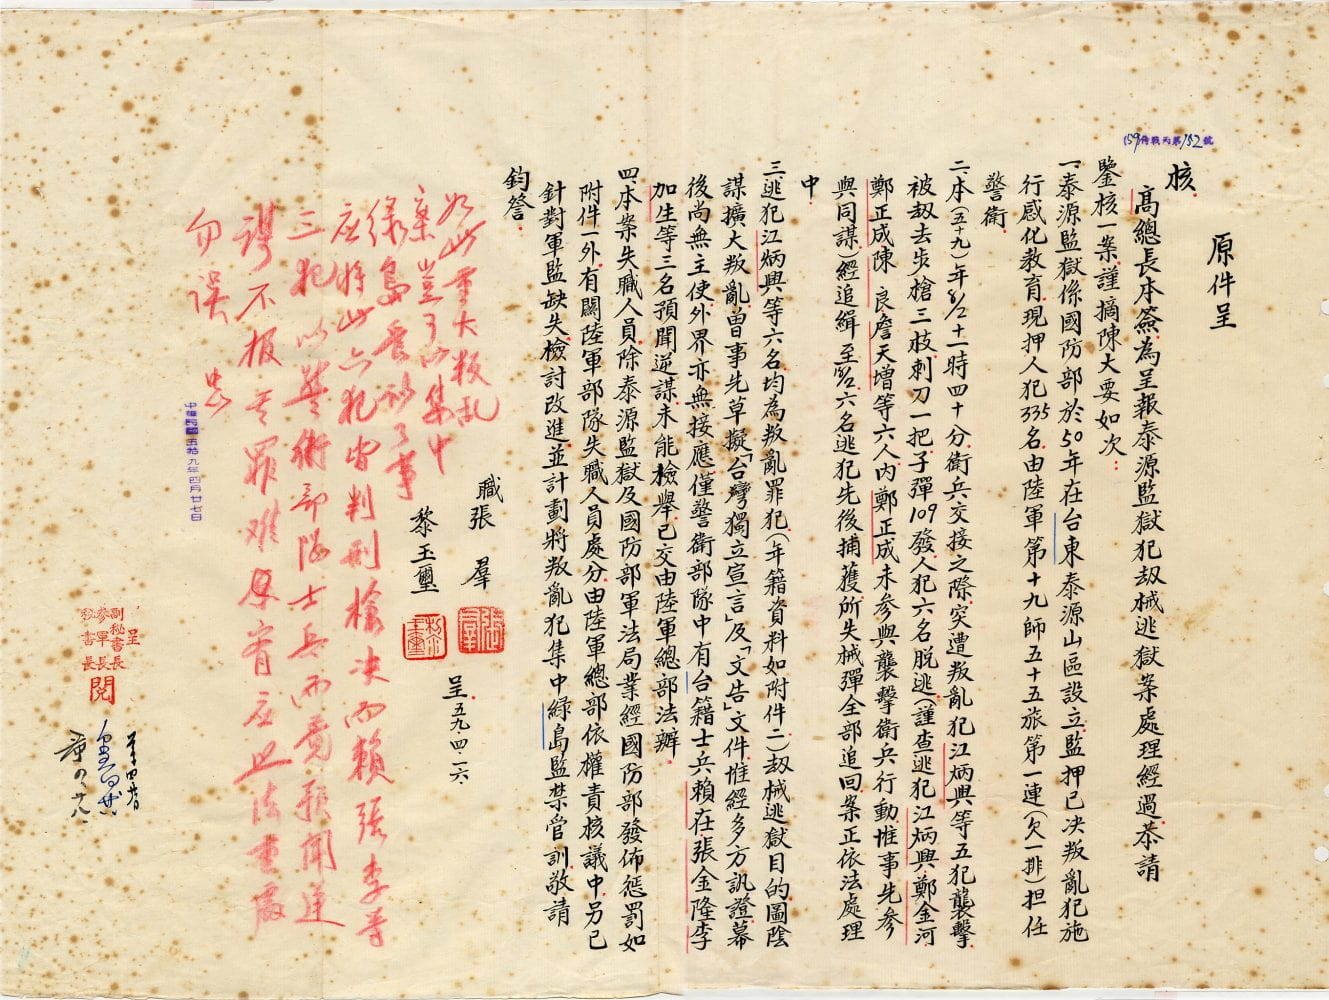 (59)侍戰丙第152號
原件呈
核
高總長本簽為呈報泰源監獄犯劫械逃獄案處理經過恭請
鑒核一案謹摘陳大要如次：
一、泰源監獄係國防部於50年在台東泰源山區設立監押已决叛亂犯施
行感化教育現押人犯335名由陸軍第十九師五十五旅第一連(欠一排)担任
警衛
二、本(五十九)年2/8十一時四十分衛兵交接之際突遭叛亂犯江炳興等五犯襲擊
被劫去步槍三枝刺刀一把子彈109發人犯六名脫逃(謹查逃犯江炳興鄭金河
鄭正成陳良詹天增等六人內鄭正成未參與襲擊衛兵行動惟事先參
與同謀)經追緝至 六名逃犯先後捕獲所失械彈全部追回案正依法處理
中
三、逃犯江炳興等六名均為叛亂罪犯(年籍資料如附件二)劫械逃獄目的圖陰
謀擴大叛亂曾事先草擬「台灣獨立宣言」及「文告」文件惟經多方訊證幕
後尚無主使外界亦無接應僅警衛部隊中有台籍士兵賴在張金隆李
加生等三名預聞逆謀未能檢舉已交由陸軍總部法辦
四、本案失職人員除泰源監獄及國防部軍法局業經國防部發佈懲罰如
附件一外有關陸軍部隊失職人員處分由陸軍總部依權責核議中另已
針對軍監缺失檢討改進並計劃將叛亂犯集中綠島監禁管訓敬請
鈞詧
職張羣
黎玉璽
呈五九、四、一六
如此重大叛亂
案豈可以集中
綠島管訓了事
應將此六犯皆判刑槍决而賴張李等
三犯以警衛部隊士兵而竟預聞逆
謀不報其罪难恕宥应照法重處
勿誤
中華民國五拾九年四月廿七日
呈
副秘書長
參軍長
秘書長
閱